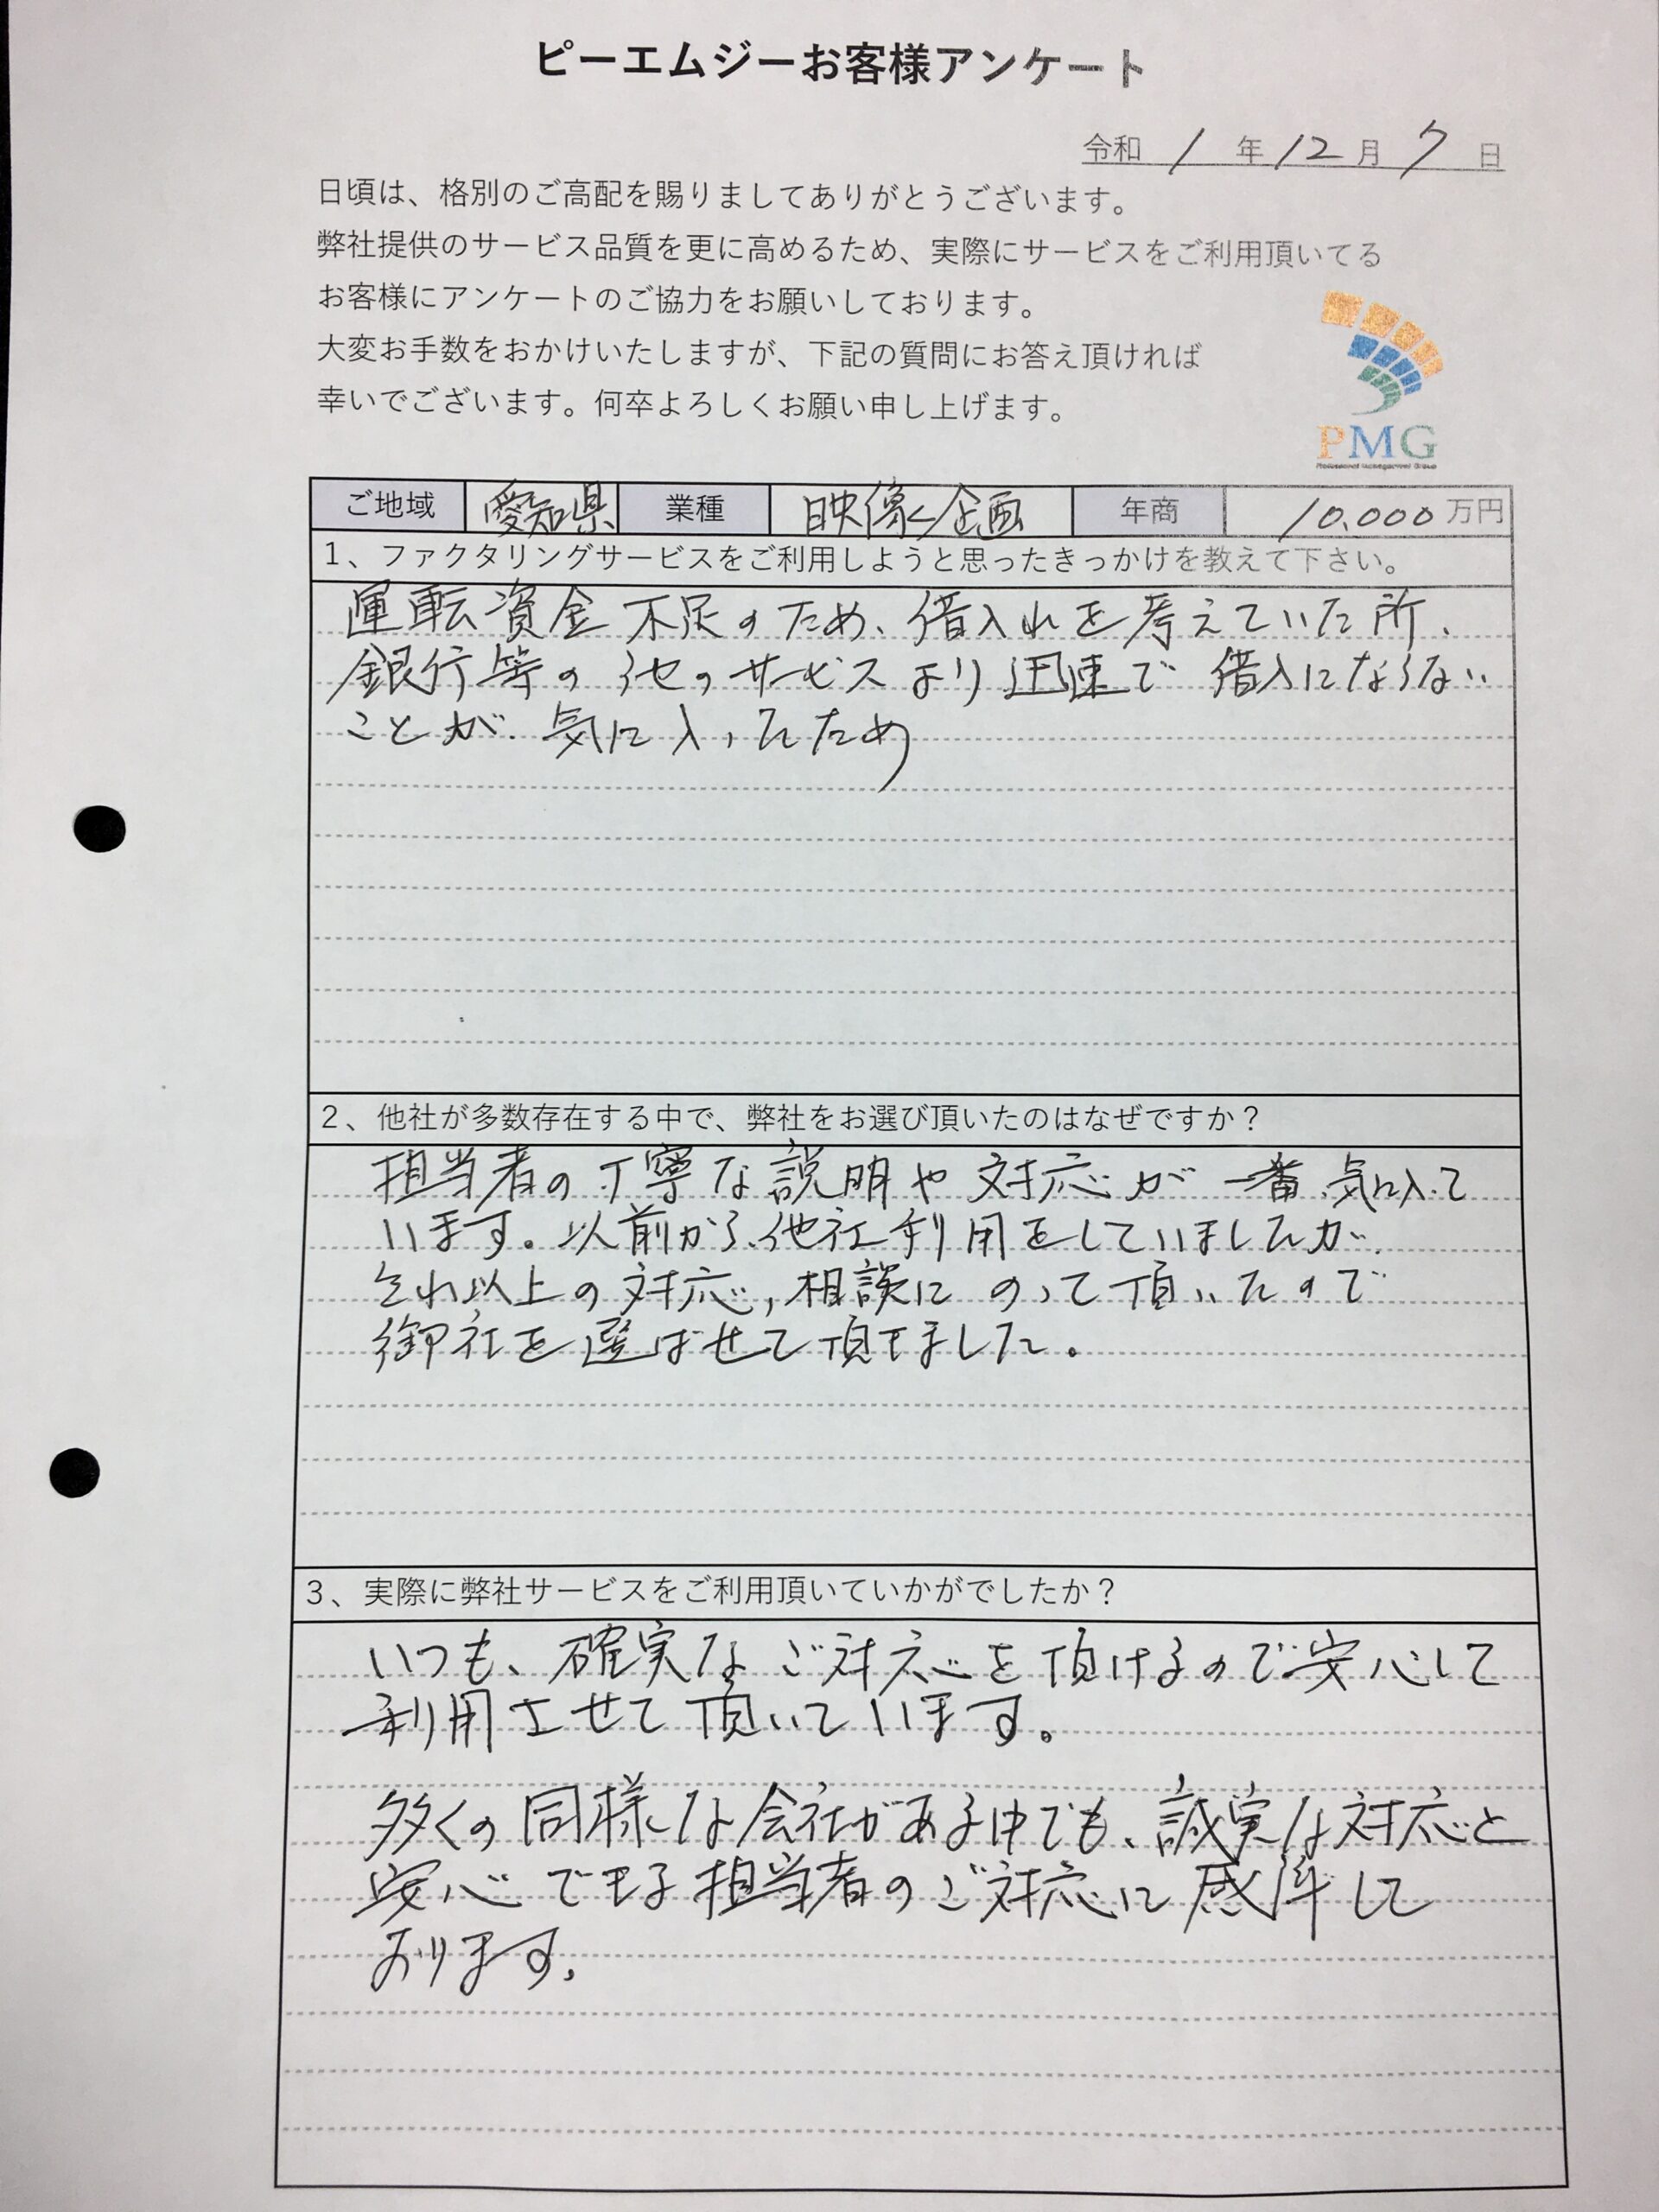 ピーエムジーお客様アンケート
令和 1 年 12 月 7 日
日頃は、格別のご高配を賜りましてありがとうございます。
弊社提供のサービス品質を更に高めるため、実際にサービスをご利用頂いてる
お客様にアンケートのご協力をお願いしております。
大変お手数をおかけいたしますが、下記の質問にお答え頂ければ
幸いでございます。何卒よろしくお願い申し上げます。
PMG
Professional Management Group
ご地域 愛知県 業種 映像企画 年商 10,000 万円
1、ファクタリングサービスをご利用しようと思ったきっかけを教えて下さい。
運転資金不足のため、借入れを考えていた所、
銀行等の他のサービスより迅速で借入にならない
ことが気に入ったため
2、他社が多数存在する中で、弊社をお選び頂いたのはなぜですか？
担当者の丁寧な説明や対応が一番気に入って
います。以前から他社利用をしていましたが、
それ以上の対応,相談にのって頂いたので
御社を選ばせて頂きました。
3、実際に弊社サービスをご利用頂いていかがでしたか？
いつも、確実なご対応を頂けるので安心して
利用させて頂いています。
多くの同様な会社がある中でも、誠実な対応と
安心できる担当者のご対応に感謝して
おります。